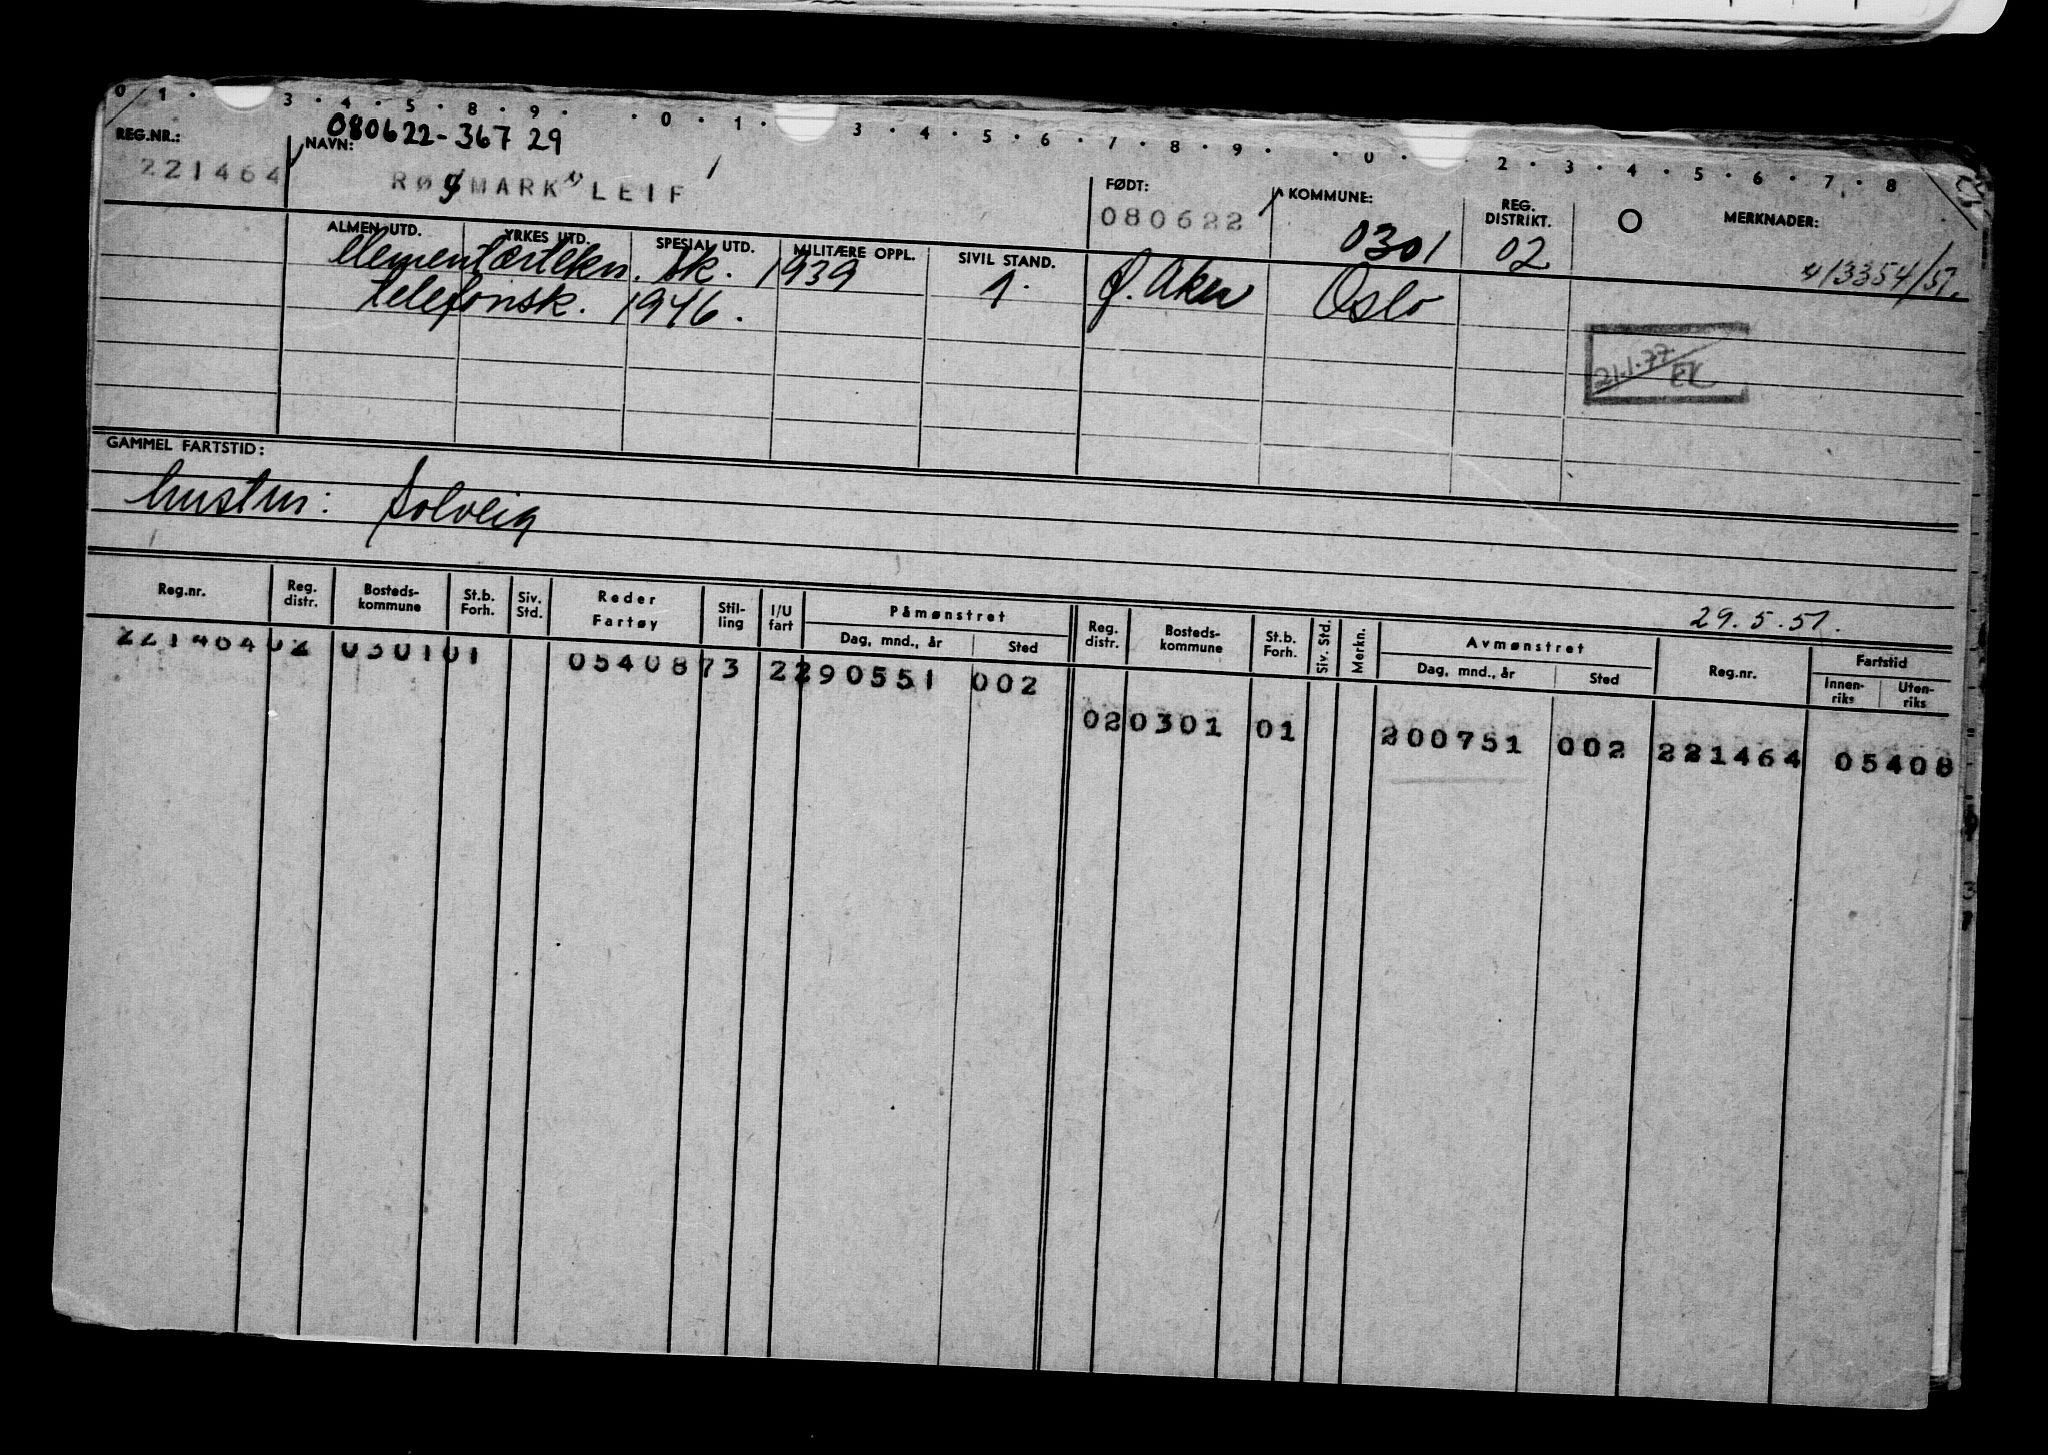 0 1 · 3 · 4 · 5 · 8 · 9 · · 0 · 1 · 3 · 4 · 5 · 6 · 7 · 8 · 9 · · 0 · 2 · 3 · 4 · 5 · 6 · 7 · 8
080622-367 29
REG.NR.: NAVN: FØDT: KOMMUNE: REG. DISTRIKT. MERKNADER:
221464 RØSMARK LEIF 080622 0301 02
413354/51.
ALMEN UTD. YRKES UTD. SPESIAL UTD. MILITÆRE OPPL. SIVIL STAND.
elementærtekn. sk. 1939 1. Ø. Aker Oslo
telefonsk. 1946.
21.1.77 EK
GAMMEL FARTSTID:
hustru: Solveig
29.5.51.
Reg.nr. Reg. distr. Bosteds- kommune St.b. Forh. Siv. Std. Reder Fartøy Stil- ling I/U fart Påmønstret Dag, mnd., år Sted Reg. distr. Bosteds- kommune St.b. Forh. Siv. Std. Merkn. Avmønstret Dag, mnd., år Sted Reg.nr. Fartstid Innen- riks Uten- riks
221464 02 0301 01 05408 73 2 290551 002
02 0301 01 200751 002 221464 05408